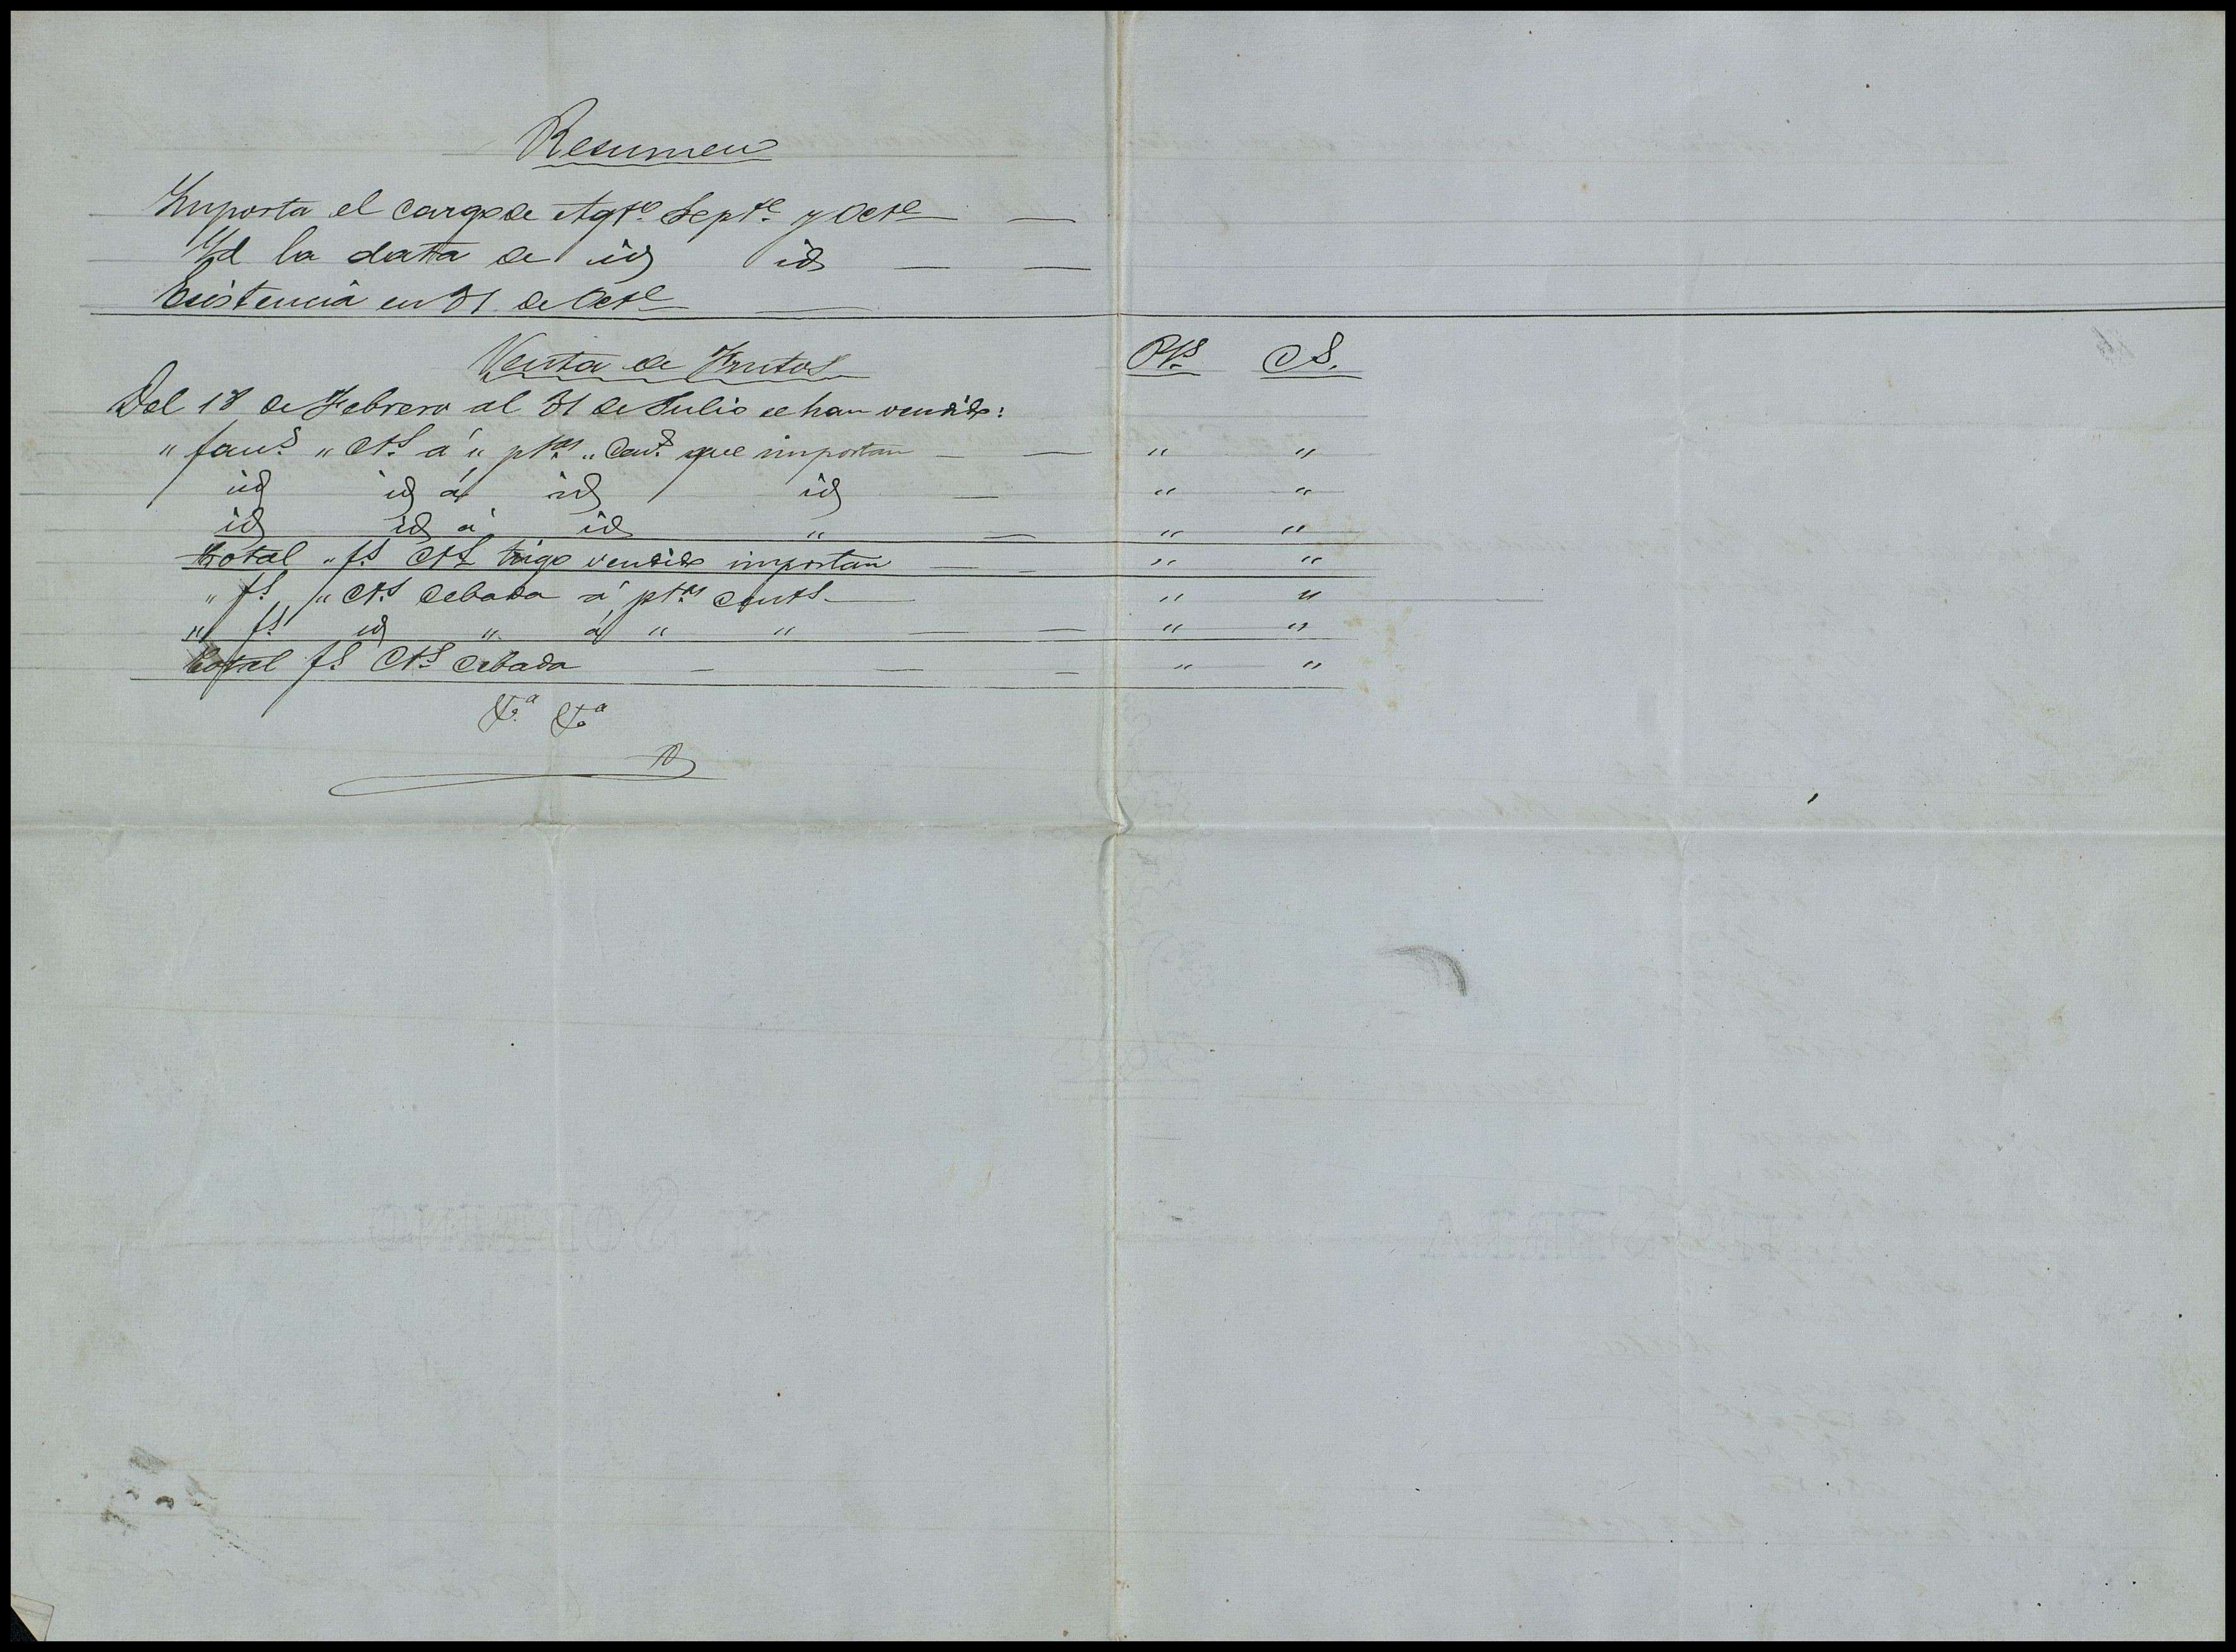 Resumen
Importa el cargo de Agto. Septe. y Octe
Id la data de id id
Existencia en 31 de Octe
Venta de Frutos Pts. Cs.
Del 18 de Febrero al 31 de Julio se han vendido:
" fans. " Cts. á " ptas. " Cent. que importan " "
id id á id id " "
id id á id " " "
Total " fs. Cts. trigo vendido importan " "
" fs. " Cts. Cebada á ptas. Cents. " "
" fs. id " á " " " "
Total fs. Cts. Cebada " "
&.a &.a